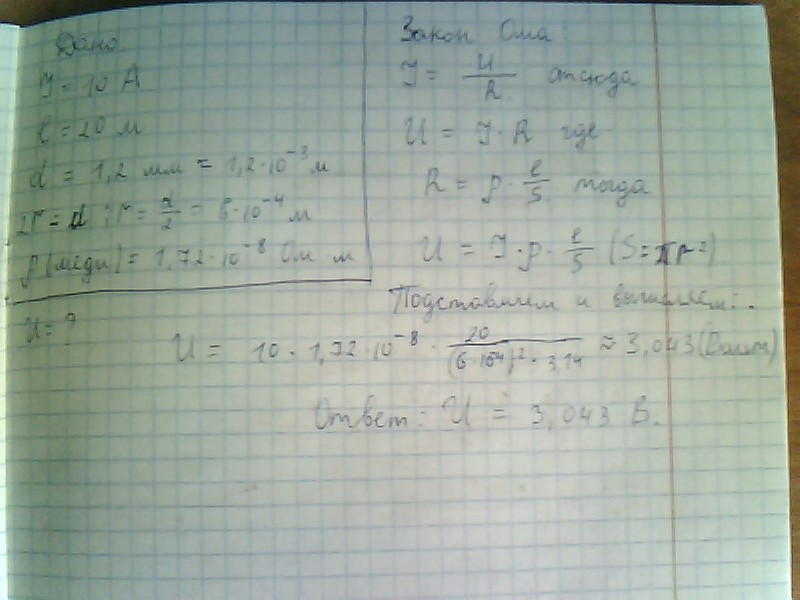 Дано
I = 10 А
l = 20 м
d = 1,2 мм = 1,2·10⁻³ м
2r = d; r = d/2 = 6·10⁻⁴ м
ρ(меди) = 1,72·10⁻⁸ Ом·м
U = ?
Закон Ома:
I = U/R отсюда
U = I·R где
R = ρ·l/S тогда
U = I·ρ·l/S (S=πr²)
Подставляем и вычисляем:
U = 10·1,72·10⁻⁸·20/((6·10⁻⁴)²·3,14) ≈ 3,043 (Вольт)
Ответ: U = 3,043 В.